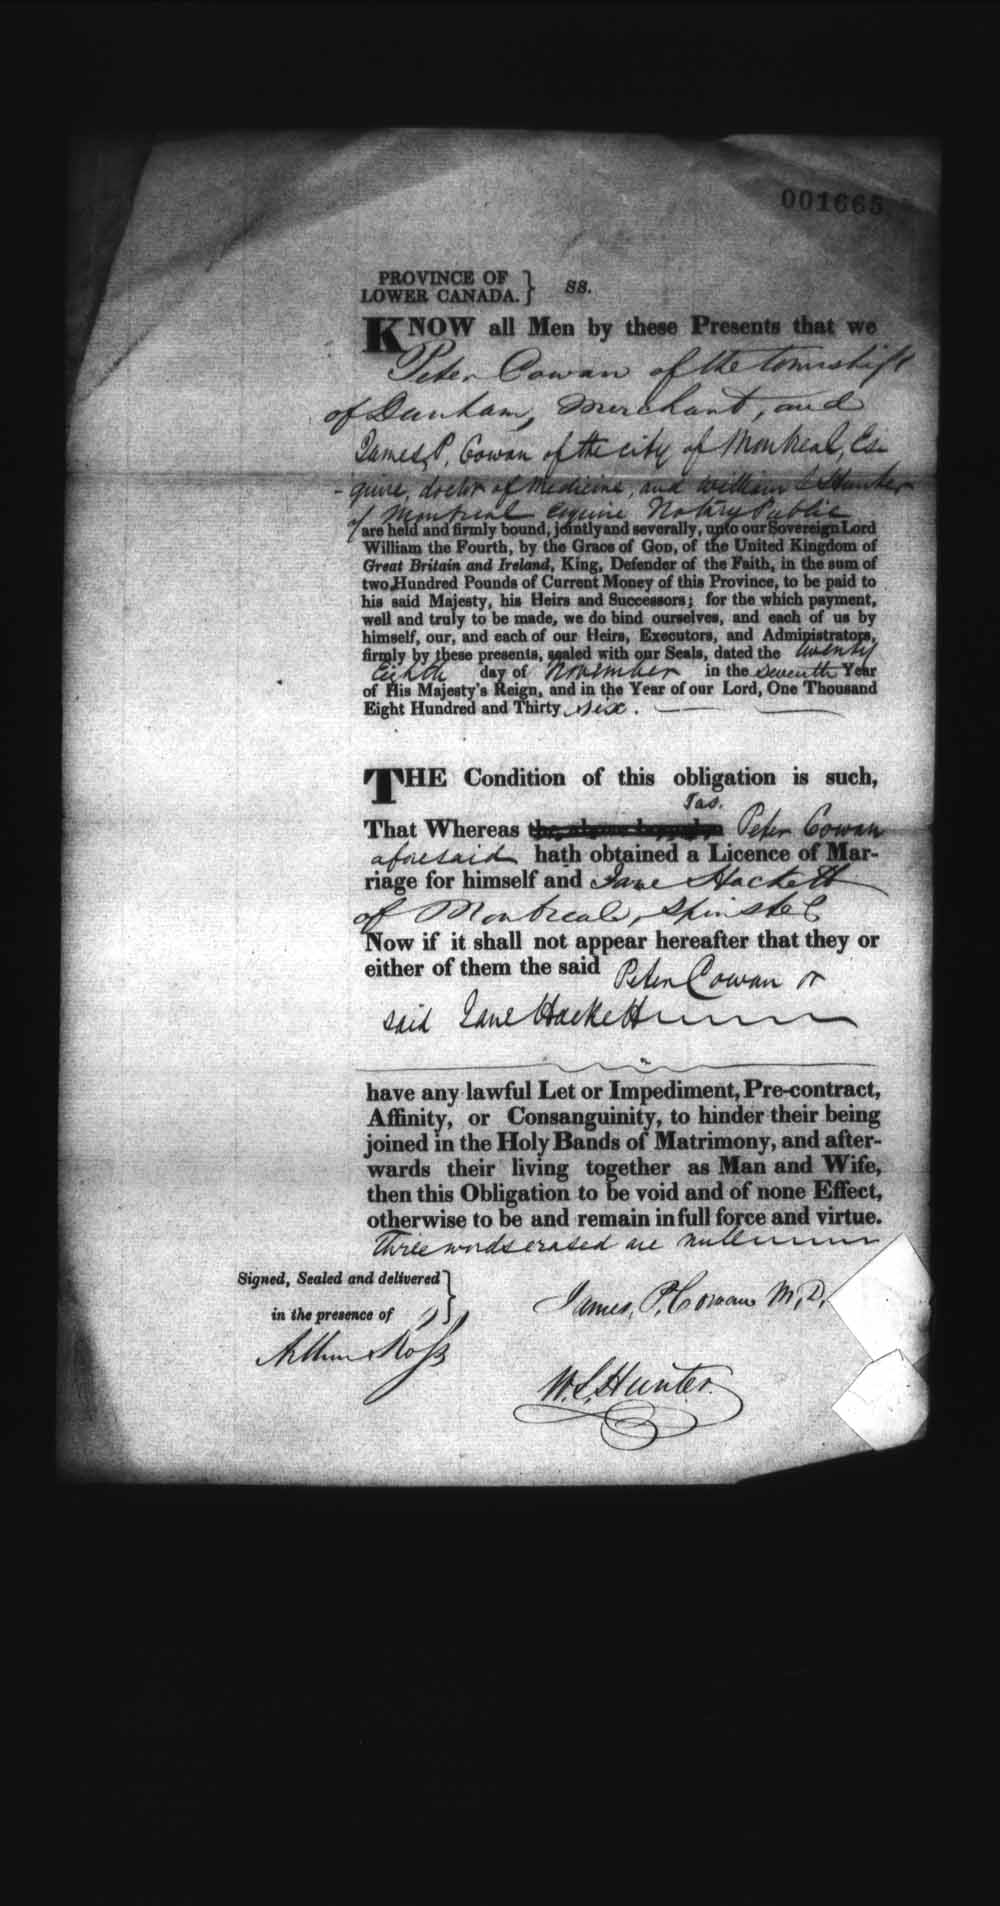 001665
PROVINCE OF
LOWER CANADA. } ss.
KNOW all Men by these Presents that we
Peter Cowan of the township
of Dunham, Merchant, and
James P. Cowan of the city of Montreal, Es-
-quire, doctor of Medicine, and William S Hunter
of Montreal Esquire Notary Public
are held and firmly bound, jointly and severally, unto our Sovereign Lord
William the Fourth, by the Grace of GOD, of the United Kingdom of
Great Britain and Ireland, King, Defender of the Faith, in the sum of
two Hundred Pounds of Current Money of this Province, to be paid to
his said Majesty, his Heirs and Successors; for the which payment,
well and truly to be made, we do bind ourselves, and each of us by
himself, our, and each of our Heirs, Executors, and Administrators,
firmly by these presents, sealed with our Seals, dated the twenty
Eighth day of November in the Seventh Year
of His Majesty's Reign, and in the Year of our Lord, One Thousand
Eight Hundred and Thirty six.
THE Condition of this obligation is such,
That Whereas Peter Cowan
aforesaid hath obtained a Licence of Mar-
riage for himself and Jane Hackett
of Montreal, Spinster
Now if it shall not appear hereafter that they or
either of them the said Peter Cowan or
said Jane Hackett
have any lawful Let or Impediment, Pre-contract,
Affinity, or Consanguinity, to hinder their being
joined in the Holy Bands of Matrimony, and after-
wards their living together as Man and Wife,
then this Obligation to be void and of none Effect,
otherwise to be and remain in full force and virtue.
three words erased are null
Signed, Sealed and delivered }
in the presence of
James, P. Cowan M,D,
Arthur Ross
W. S. Hunter.